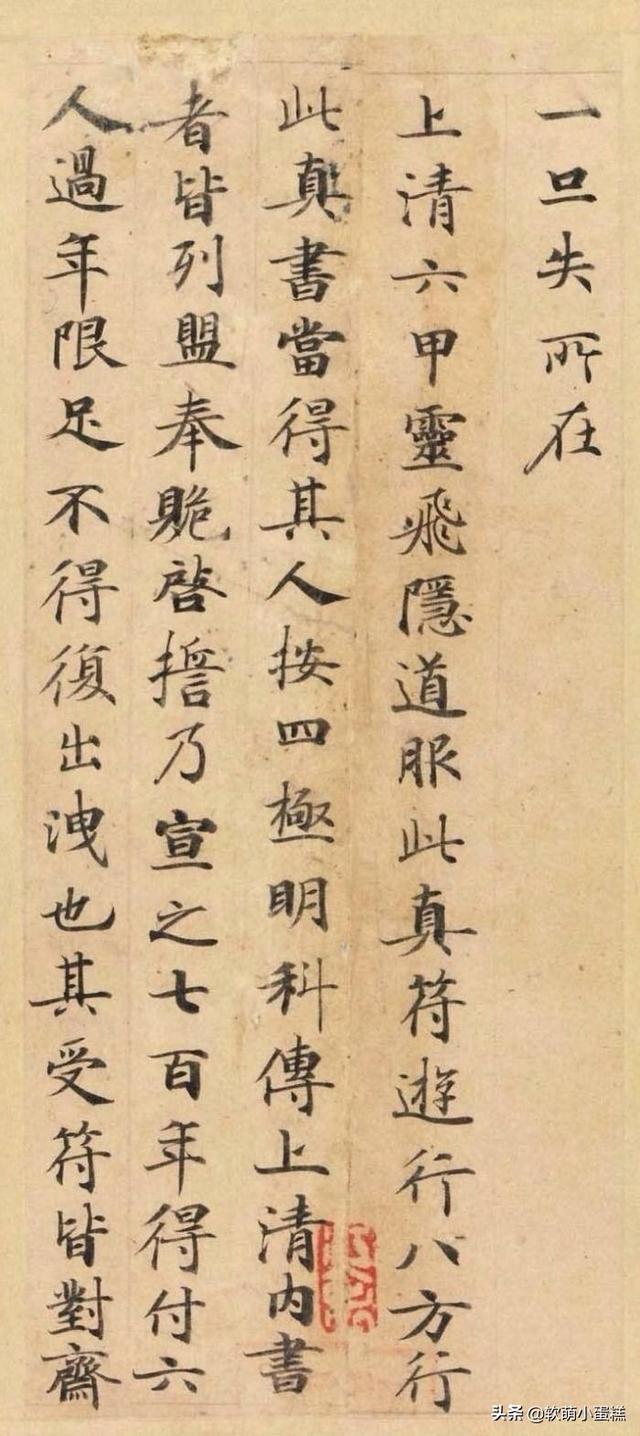 一旦失所在
上清六甲靈飛隱道服此真符遊行八方行
此真書當得其人按四極明科傳上清內書
者皆列盟奉貺啓誓乃宣之七百年得付六
人過年限足不得復出洩也其受符皆對齋
头条 @软萌小蛋糕